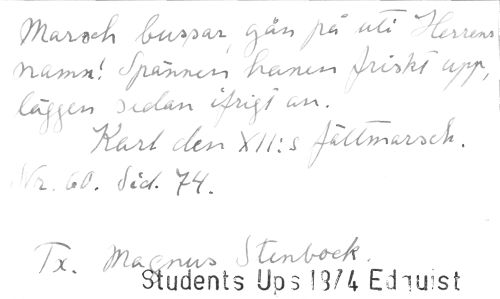 Marsch bussar, gån på uti Herrens
namn! Spännen hanen friskt upp,
läggen sedan ifrigt an.
Karl den XII:s fältmarsch.
Nr. 60. Sid. 74.
Tx. Magnus Stenbock.
Students Ups 1874 Edquist